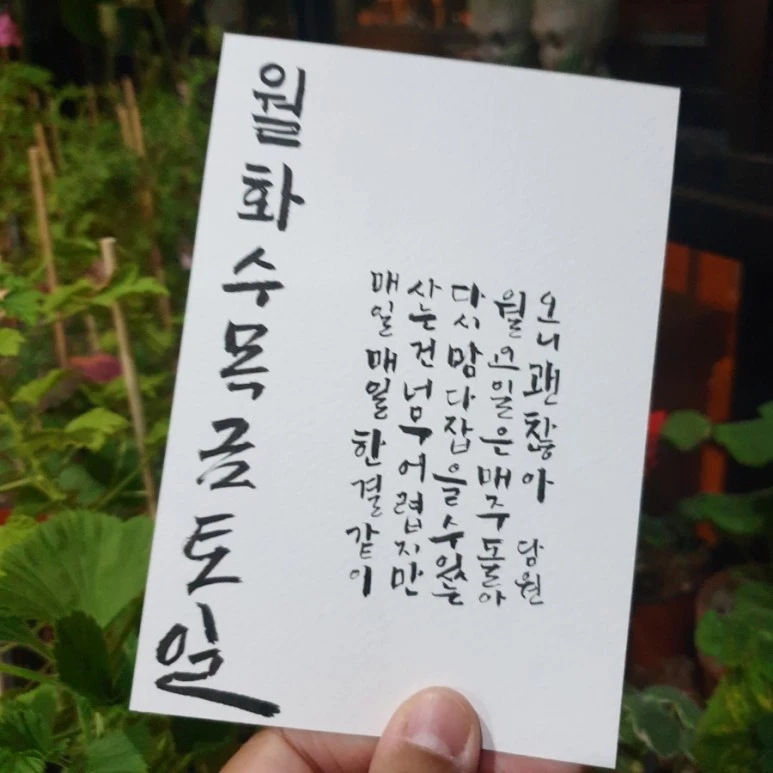 월화수목금토일
매일 매일 한결같이
사는건 너무 어렵지만
다시 맘 다잡을 수 있는
월요일은 매주 돌아
오니 괜찮아 담원